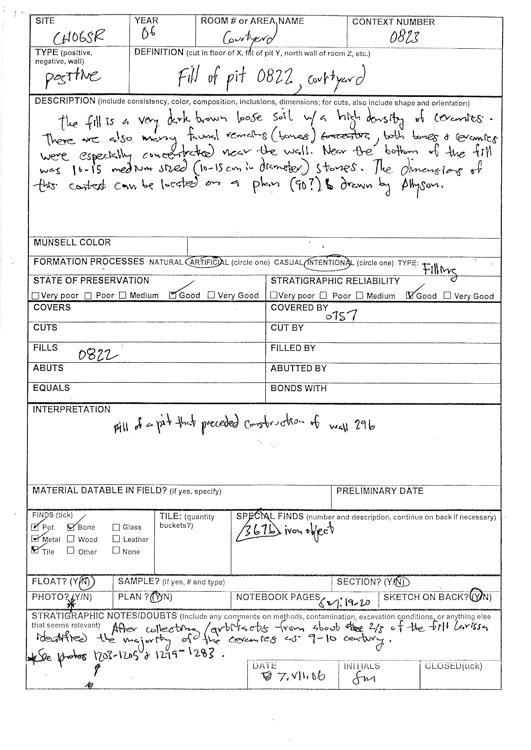 SITE YEAR ROOM # or AREA NAME CONTEXT NUMBER
CH06SR 06 Courtyard 0823
TYPE (positive, negative, wall) DEFINITION (cut in floor of X, fill of pit Y, north wall of room Z, etc.)
positive Fill of pit 0822, courtyard
DESCRIPTION (include consistency, color, composition, inclusions, dimensions; for cuts, also include shape and orientation)
The fill is a very dark brown loose soil w/ a high density of ceramics.
There are also many faunal remains (bones), both bones & ceramics
were especially concentrated near the wall. Near the bottom of the fill
was 10-15 medium sized (10-15 cm in diameter) stones. The dimensions of
this context can be located on a plan (90?) drawn by Allyson.
MUNSELL COLOR
FORMATION PROCESSES NATURAL ARTIFICIAL (circle one) CASUAL INTENTIONAL (circle one) TYPE: Filling
STATE OF PRESERVATION STRATIGRAPHIC RELIABILITY
☐ Very poor ☐ Poor ☐ Medium ☑ Good ☐ Very Good ☐ Very poor ☐ Poor ☐ Medium ☑ Good ☐ Very Good
COVERS COVERED BY 0757
CUTS CUT BY
FILLS 0822 FILLED BY
ABUTS ABUTTED BY
EQUALS BONDS WITH
INTERPRETATION
Fill of a pit that preceded construction of wall 296
MATERIAL DATABLE IN FIELD? (if yes, specify) PRELIMINARY DATE
FINDS (tick) TILE: (quantity buckets?) SPECIAL FINDS (number and description, continue on back if necessary)
☑ Pot ☑ Bone ☐ Glass 3676 iron object
☑ Metal ☐ Wood ☐ Leather
☑ Tile ☐ Other ☐ None
FLOAT? (Y/N) SAMPLE? (if yes, # and type) SECTION? (Y/N)
PHOTO? (Y/N) PLAN? (Y/N) NOTEBOOK PAGES 19-20 SKETCH ON BACK? (Y/N)
STRATIGRAPHIC NOTES/DOUBTS (include any comments on methods, contamination, excavation conditions, or anything else
that seems relevant) After collecting artifacts from about 2/3 of the fill Larissa
identified the majority of the ceramics as 9-10 century.
*See photos 1203-1205 & 1279-1283.
DATE INITIALS CLOSED (tick)
7.VII.06 SM